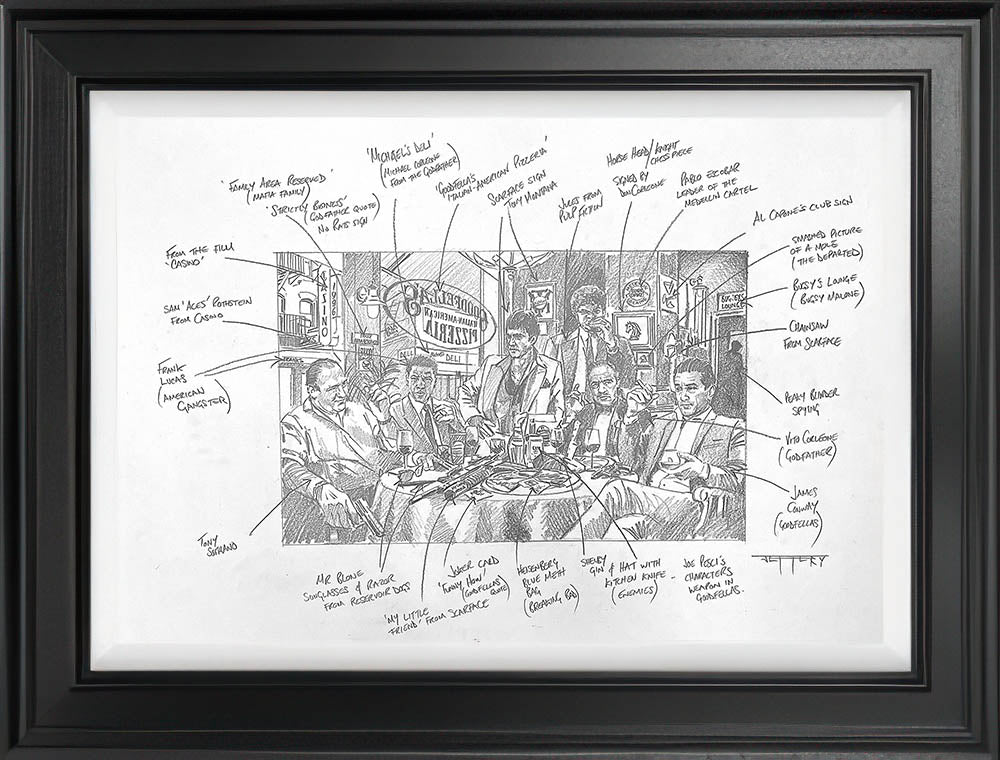 'MICHAEL'S DELI'
(MICHAEL CORLEONE
FROM THE GODFATHER)
'FAMILY AREA RESERVED'
(MAFIA FAMILY)
'STRICTLY BUSINESS'
(GODFATHER QUOTE)
NO RATS SIGN
'GOODFELLA'S
ITALIAN-AMERICAN PIZZERIA'
SCARFACE SIGN
TONY MONTANA
JULES FROM
PULP FICTION
HORSE HEAD/KNIGHT
CHESS PIECE
SIGNED BY
DON CORLEONE
PABLO ESCOBAR
LEADER OF THE
MEDELLIN CARTEL
AL CAPONE'S CLUB SIGN
SMASHED PICTURE
OF A MOLE
(THE DEPARTED)
BUGSY'S LOUNGE
(BUGSY MALONE)
CHAINSAW
FROM SCARFACE
PEAKY BLINDER
SPYING
VITO CORLEONE
(GODFATHER)
JAMES
CONWAY
(GOODFELLAS)
FROM THE FILM
'CASINO'
SAM 'ACES' ROTHSTEIN
FROM CASINO
FRANK
LUCAS
(AMERICAN
GANGSTER)
TONY
SOPRANO
CASINO
GOODFELLA'S
ITALIAN-AMERICAN
PIZZERIA
DELI
DELI
BUGSY'S
LOUNGE
MR BLONE
SUNGLASSES & RAZOR
FROM RESERVOIR DOGS
'MY LITTLE
FRIEND' FROM SCARFACE
JOKER CARD
'FUNNY HOW'
(GOODFELLAS
QUOTE)
HEISENBERG
BLUE METH
BAG
(BREAKING BAD)
SHELBY
GIN
& HAT WITH
KITCHEN KNIFE
(ENEMIES)
JOE PESCI'S
CHARACTERS
WEAPON IN
GOODFELLAS.
JJ ETTERY